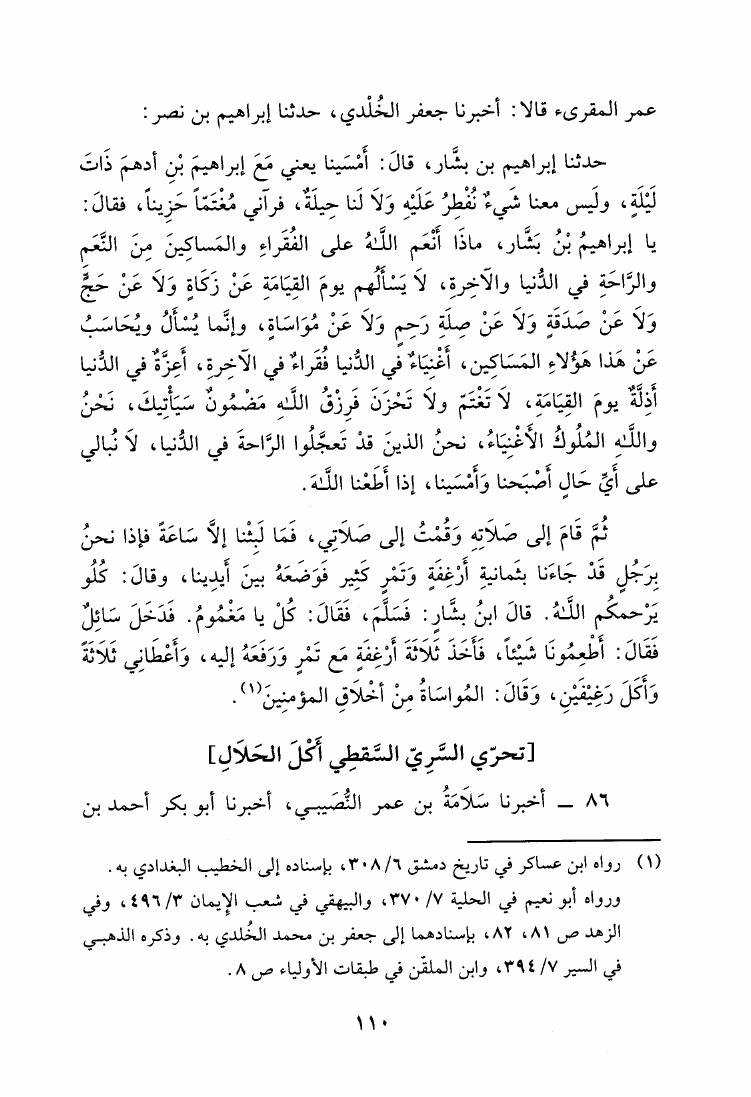 عمر المقرىء قالا: أخبرنا جعفر الخُلْدي، حدثنا إبراهيم بن نصر:
حدثنا إبراهيم بن بشَّار، قالَ: أَمْسَينا يعني مَعَ إبراهيمَ بْنِ أدهمَ ذَاتَ
لَيْلَةٍ، وليس معنا شَيءٌ نُفْطِرُ عَلَيْهِ وَلَا لَنا حِيلَةٌ، فرآني مُغْتَمّاً حَزِيناً، فقالَ:
يا إبراهيمُ بْنُ بَشَّار، ماذَا أَنْعَم اللَّـهُ على الفُقَراءِ والمَساكِينَ مِنَ النَّعَم
والرَّاحَةِ في الدُّنيا والآخِرةِ، لَا يَسْأَلُهم يومَ القِيَامَةِ عَنْ زَكَاةٍ وَلَا عَنْ حَجٍّ
وَلَا عَنْ صَدَقَةٍ وَلَا عَنْ صِلَةِ رَحِمٍ وَلَا عَنْ مُوَاسَاةٍ، وإنَّما يُسْأَلُ ويُحَاسَبُ
عَنْ هَذا هَؤُلاءِ المَسَاكِين، أَغْنِيَاءُ في الدُّنيا فُقَراءُ في الآخِرةِ، أَعِزَّةٌ في الدُّنيا
أَذِلَّةٌ يومَ القِيَامَةِ، لَا تَغْتَمّ ولَا تَحْزَنَ فَرِزْقُ اللَّـهِ مَضْمُونٌ سَيَأْتِيكَ، نَحْنُ
واللَّـهِ المُلُوكُ الأَغْنِيَاءُ، نحنُ الذينَ قدْ تَعجَّلُوا الرَّاحةَ في الدُّنيا، لَا نُبالي
على أَيِّ حَالٍ أَصْبَحنا وَأَمْسَينا، إذا أَطَعْنا اللَّـهَ.
ثُمَّ قَامَ إلى صَلَاتِهِ وَقُمْتُ إلى صَلَاتِي، فَمَا لَبِثْنا إلاَّ سَاعَةً فإذا نحنُ
بِرَجُلٍ قَدْ جَاءَنا بثَمانيةِ أَرْغِفَةٍ وَتَمْرٍ كَثِيرٍ فَوَضَعَهُ بينَ أَيدِينا، وقالَ: كُلُو
يَرْحمكُم اللَّـهُ. قالَ ابنُ بشَّارٍ: فَسَلَّمَ، فَقَالَ: كُلْ يا مَغْمُومُ. فَدَخَلَ سَائِلٌ
فَقَالَ: أَطْعِمُونَا شَيْئاً، فَأَخَذَ ثَلَاثَةَ أَرْغِفَةٍ مَع تَمْرٍ وَرَفَعَهُ إليه، وَأَعْطَانِي ثَلَاثَةً
وَأَكَلَ رَغِيْفَيْنِ، وَقَالَ: المُواسَاةُ مِنْ أَخْلَاقِ المؤمنينَ(١).
[تحرّي السَّرِيّ السَّقطِي أَكْلَ الحَلَالِ]
٨٦ ــ أخبرنا سَلَامَةُ بن عمر النُّصَيبـي، أخبرنا أبو بكر أحمد بن
(١) رواه ابن عساكر في تاريخ دمشق ٣٠٨/٦، بإسناده إلى الخطيب البغدادي به.
ورواه أبو نعيم في الحلية ٣٧٠/٧، والبيهقي في شعب الإيمان ٤٩٦/٣، وفي
الزهد ص ٨١، ٨٢، بإسنادهما إلى جعفر بن محمد الخُلدي به. وذكره الذهبـي
في السير ٣٩٤/٧، وابن الملقّن في طبقات الأولياء ص ٨.
١١٠